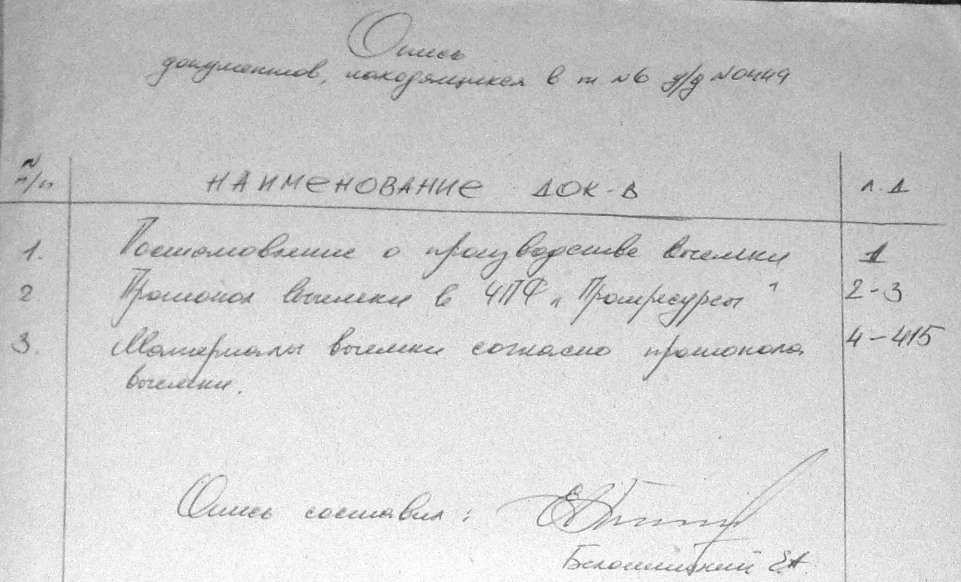 Опись
документов, находящихся в т. №6 у/д №0449
№ п/п НАИМЕНОВАНИЕ ДОК-В л.д
1. Постановление о производстве выемки 1
2 Протокол выемки в ЧПФ „Промресурсы" 2-3
3. Материалы выемки согласно протокола 4-415
выемки.
Опись составил: